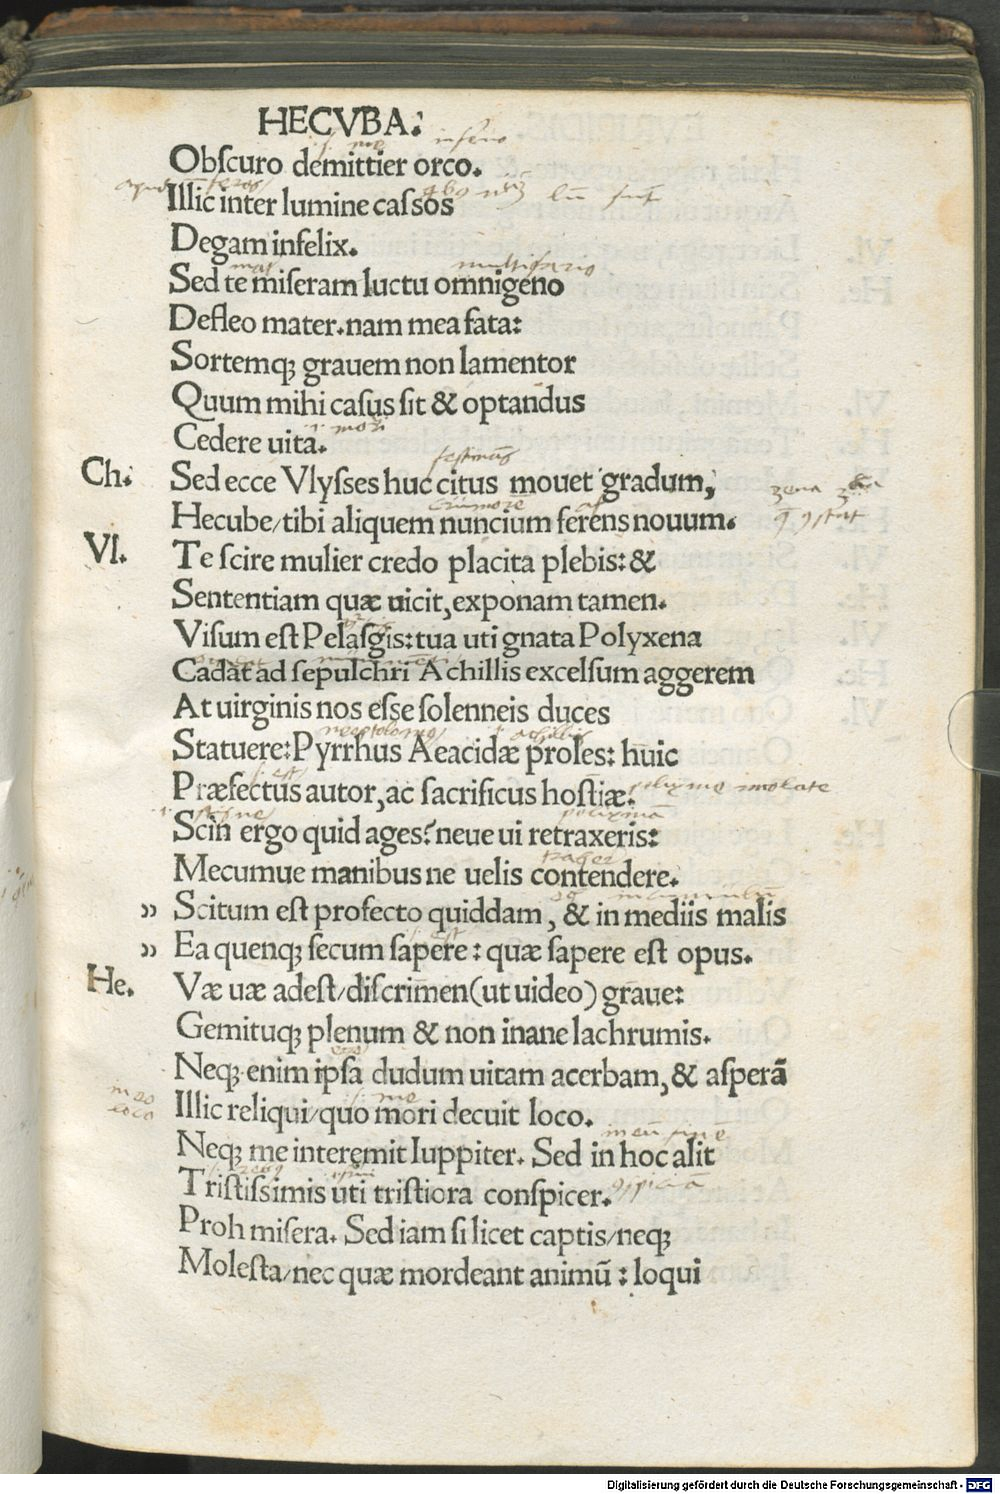 HECVBA.
inferno
Obscuro demittier orco.
Illic inter lumine cassos
Degam infelix.
multifario
Sed te miseram luctu omnigeno
Defleo mater. nam mea fata:
Sortemqꝫ grauem non lamentor
Quum mihi casus sit & optandus
i. mori
Cedere uita.
Ch. Sed ecce Vlysses huc citus mouet gradum,
Hecube/tibi aliquem nuncium ferens nouum.
Vl. Te scire mulier credo placita plebis: &
Sententiam quæ uicit, exponam tamen.
Visum est Pelasgis: tua uti gnata Polyxena
Cadat ad sepulchri Achillis excelsum aggerem
At uirginis nos esse solenneis duces
neoptolomus achillis
Statuere: Pyrrhus Aeacidæ proles: huic
Præfectus autor, ac sacrificus hostiæ.
Scin ergo quid ages? neue ui retraxeris:
Mecumue manibus ne uelis contendere.
» Scitum est profecto quiddam, & in mediis malis
» Ea quenqꝫ secum sapere: quæ sapere est opus.
He. Væ uæ adest/discrimen (ut uideo) graue:
Gemituqꝫ plenum & non inane lachrumis.
Neqꝫ enim ipsa dudum uitam acerbam, & asperā
meo loco
Illic reliqui/quo mori decuit loco.
Neqꝫ me interemit Iuppiter. Sed in hoc alit
Tristissimis uti tristiora conspicer.
Proh misera. Sed iam si licet captis/neqꝫ
Molesta/nec quæ mordeant animū: loqui
Digitalisierung gefördert durch die Deutsche Forschungsgemeinschaft - DFG